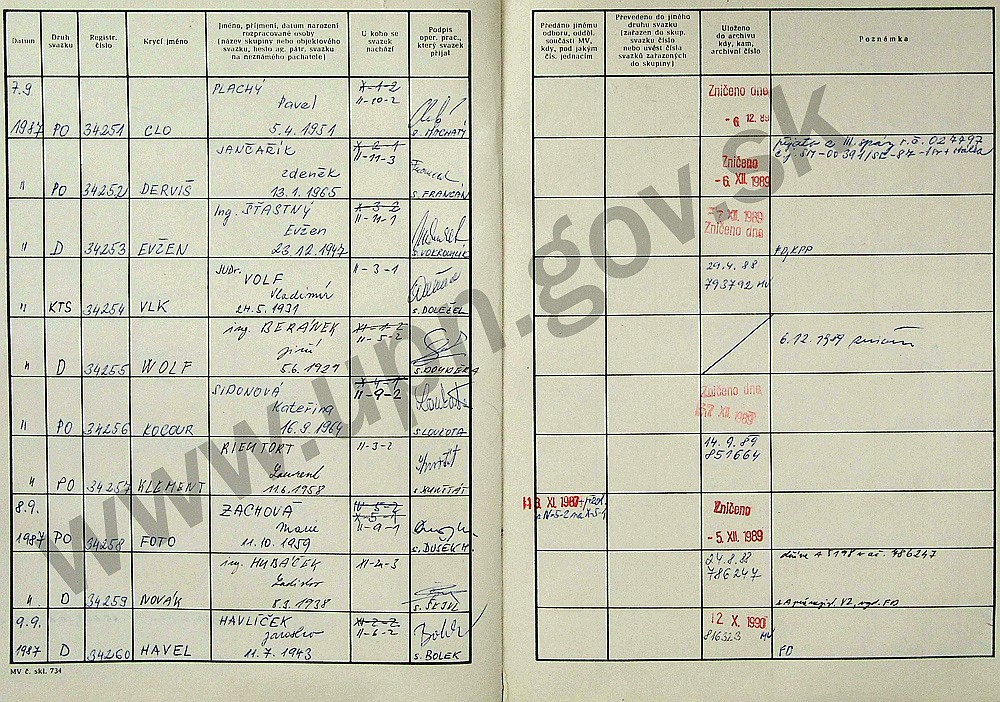 Datum
Druh svazku
Registr. číslo
Krycí jméno
Jméno, příjmení, datum narození
rozpracované osoby
(název skupiny nebo objektového
svazku, heslo ag. pátr. svazku
na neznámého pachatele)
U koho se
svazek
nachází
Podpis
oper. prac.,
který svazek
přijal
Předáno jinému
odboru, odděl.
součásti MV,
kdy, pod jakým
čís. jednacím
Převedeno do jiného
druhu svazku
(zařazen do skup.
svazku číslo
nebo uvést čísla
svazků zařazených
do skupiny)
Uloženo
do archivu
kdy, kam,
archivní číslo
Poznámka
7.9
1987 PO 34251 CLO
PLACHÝ
Pavel
5.4.1951
X-1-2
II-10-2
s. MOCHATÝ
Zničeno dne
- 6. 12. 89
" PO 34252 DERVIŠ
JANČAŘÍK
Zdeněk
13.1.1965
X-2-1
II-11-3
S. FRANCÁN
Zničeno
- 6. XII. 1989
" D 34253 EVŽEN
Ing. ŠŤASTNÝ
Evžen
23.12.1947
X-3-2
II-11-1
S. VOKROUHLÍK
- 7. XII. 1989
Zničeno dne
KPP
" KTS 34254 VLK
JUDr. VOLF
Vladimír
24.5.1931
II-3-1
S. DOLEČEL
29.4.88
793792 MV
" D 34255 WOLF
ing. BERÁNEK
Jiří
5.6.1921
II-5-2
S. DOUDĚRA
6.12.1989
" PO 34256 KOCOUR
SIDONOVÁ
Kateřina
16.9.1964
X-4-1
II-9-2
S. LOUKOTA
Zničeno dne
XII. 1989
" PO 34257 KLEMENT
RIEUTORT
Laurent
11.6.1958
II-3-2
14.9.89
851664
8.9.
1987 PO 34258 FOTO
ZACHOVA
Marie
11.10.1959
IV-5-2
X-5-1
II-9-1
S. DUŠEK M.
XI. 1987
Zničeno
- 5. XII. 1989
" D 34259 NOVÁK
ing. HUBÁČEK
Ladislav
8.3.1938
S. ŠKJVL
24.8.88
786247
9.9.
1987 D 34260 HAVEL
HAVLÍČEK
Jaroslav
11.7.1943
XI-2-2
II-6-2
S. BOLEK
12 X. 1990
816323 MV
FD
MV č. skl. 734
www.upn.gov.sk